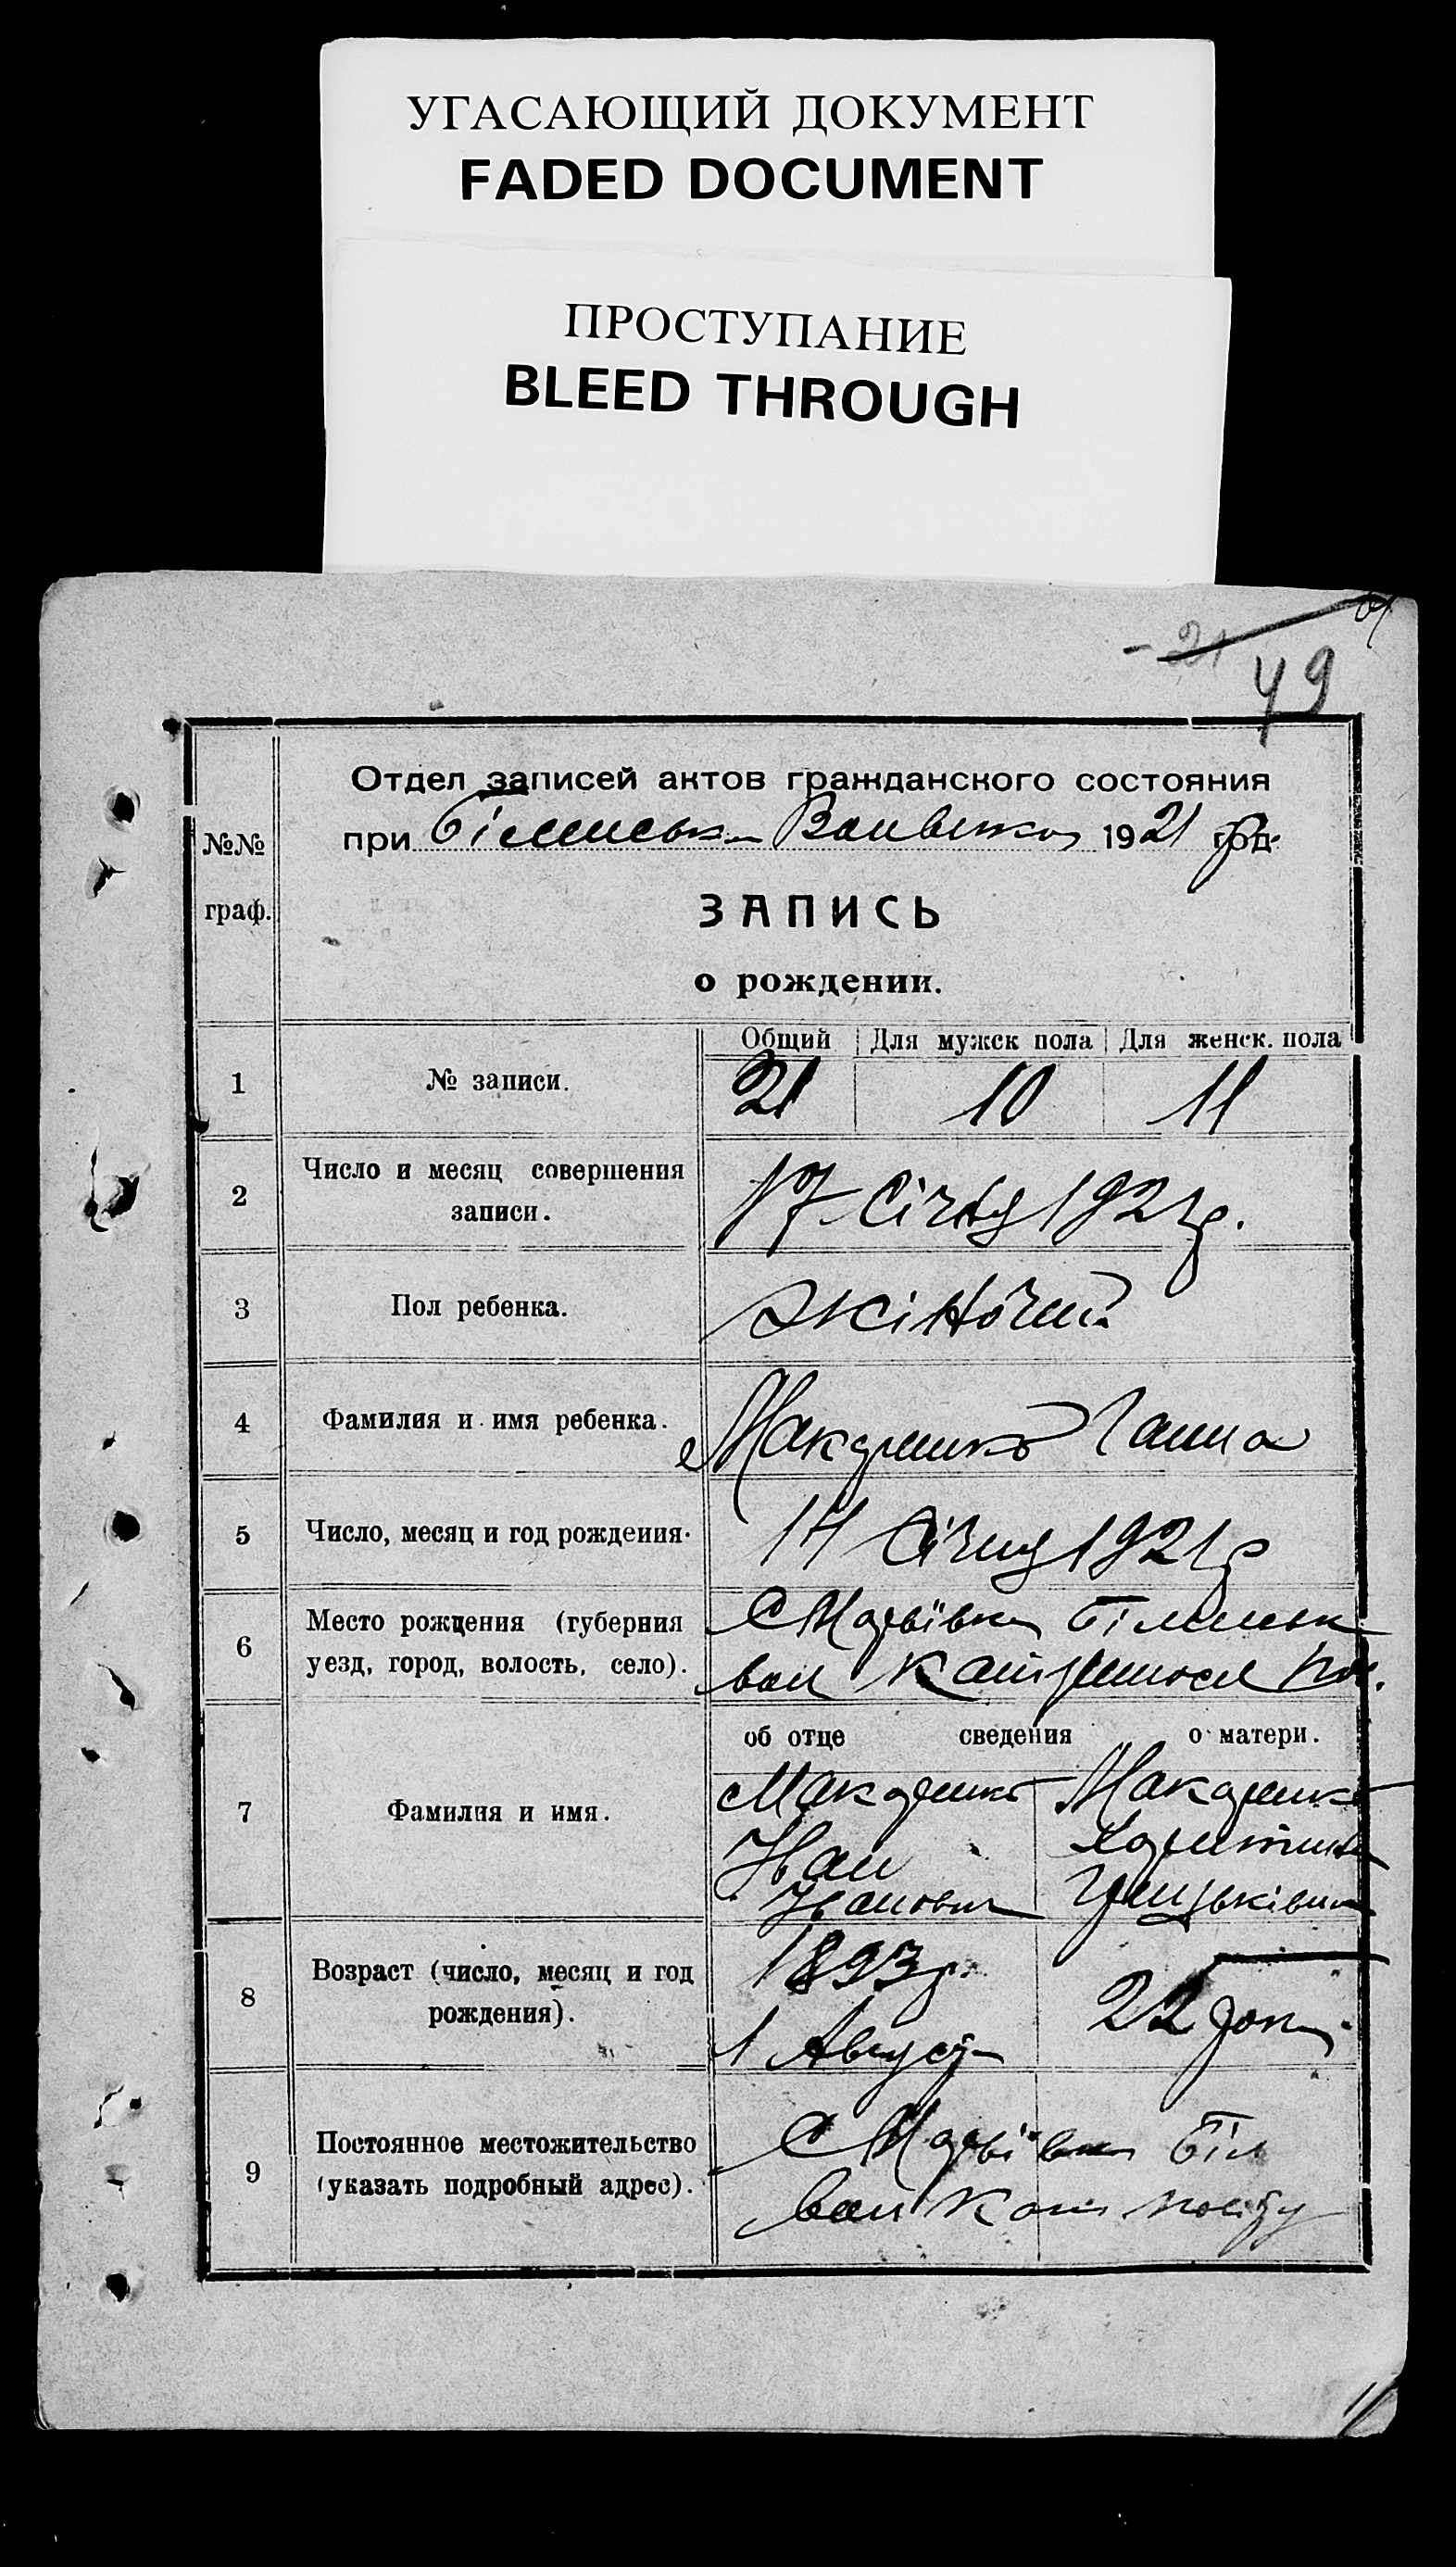 УГАСАЮЩИЙ ДОКУМЕНТ
FADED DOCUMENT
ПРОСТУПАНИЕ
BLEED THROUGH
21
49
№№ граф.
Отдел записей актов гражданского состояния
при 1921 год.
ЗАПИСЬ
о рождении.
Общий Для мужск пола Для женск. пола
1 № записи. 21 10 11
2 Число и месяц совершения записи. 17 Січня 1921 р.
3 Пол ребенка. Жіночий
4 Фамилия и имя ребенка. Макаренко Ганна
5 Число, месяц и год рождения. 14 Січня 1921 р
6 Место рождения (губерния
уезд, город, волость, село).
С Марьївка
вол
об отце сведения о матери.
7 Фамилия и имя.
Макаренко Макаренко
Иван Харитина
Иванович
8 Возраст (число, месяц и год
рождения).
1893 р. 22 роки
1 Августа
9 Постоянное местожительство
(указать подробный адрес).
С Марьївка Біл
вол Кат повіту